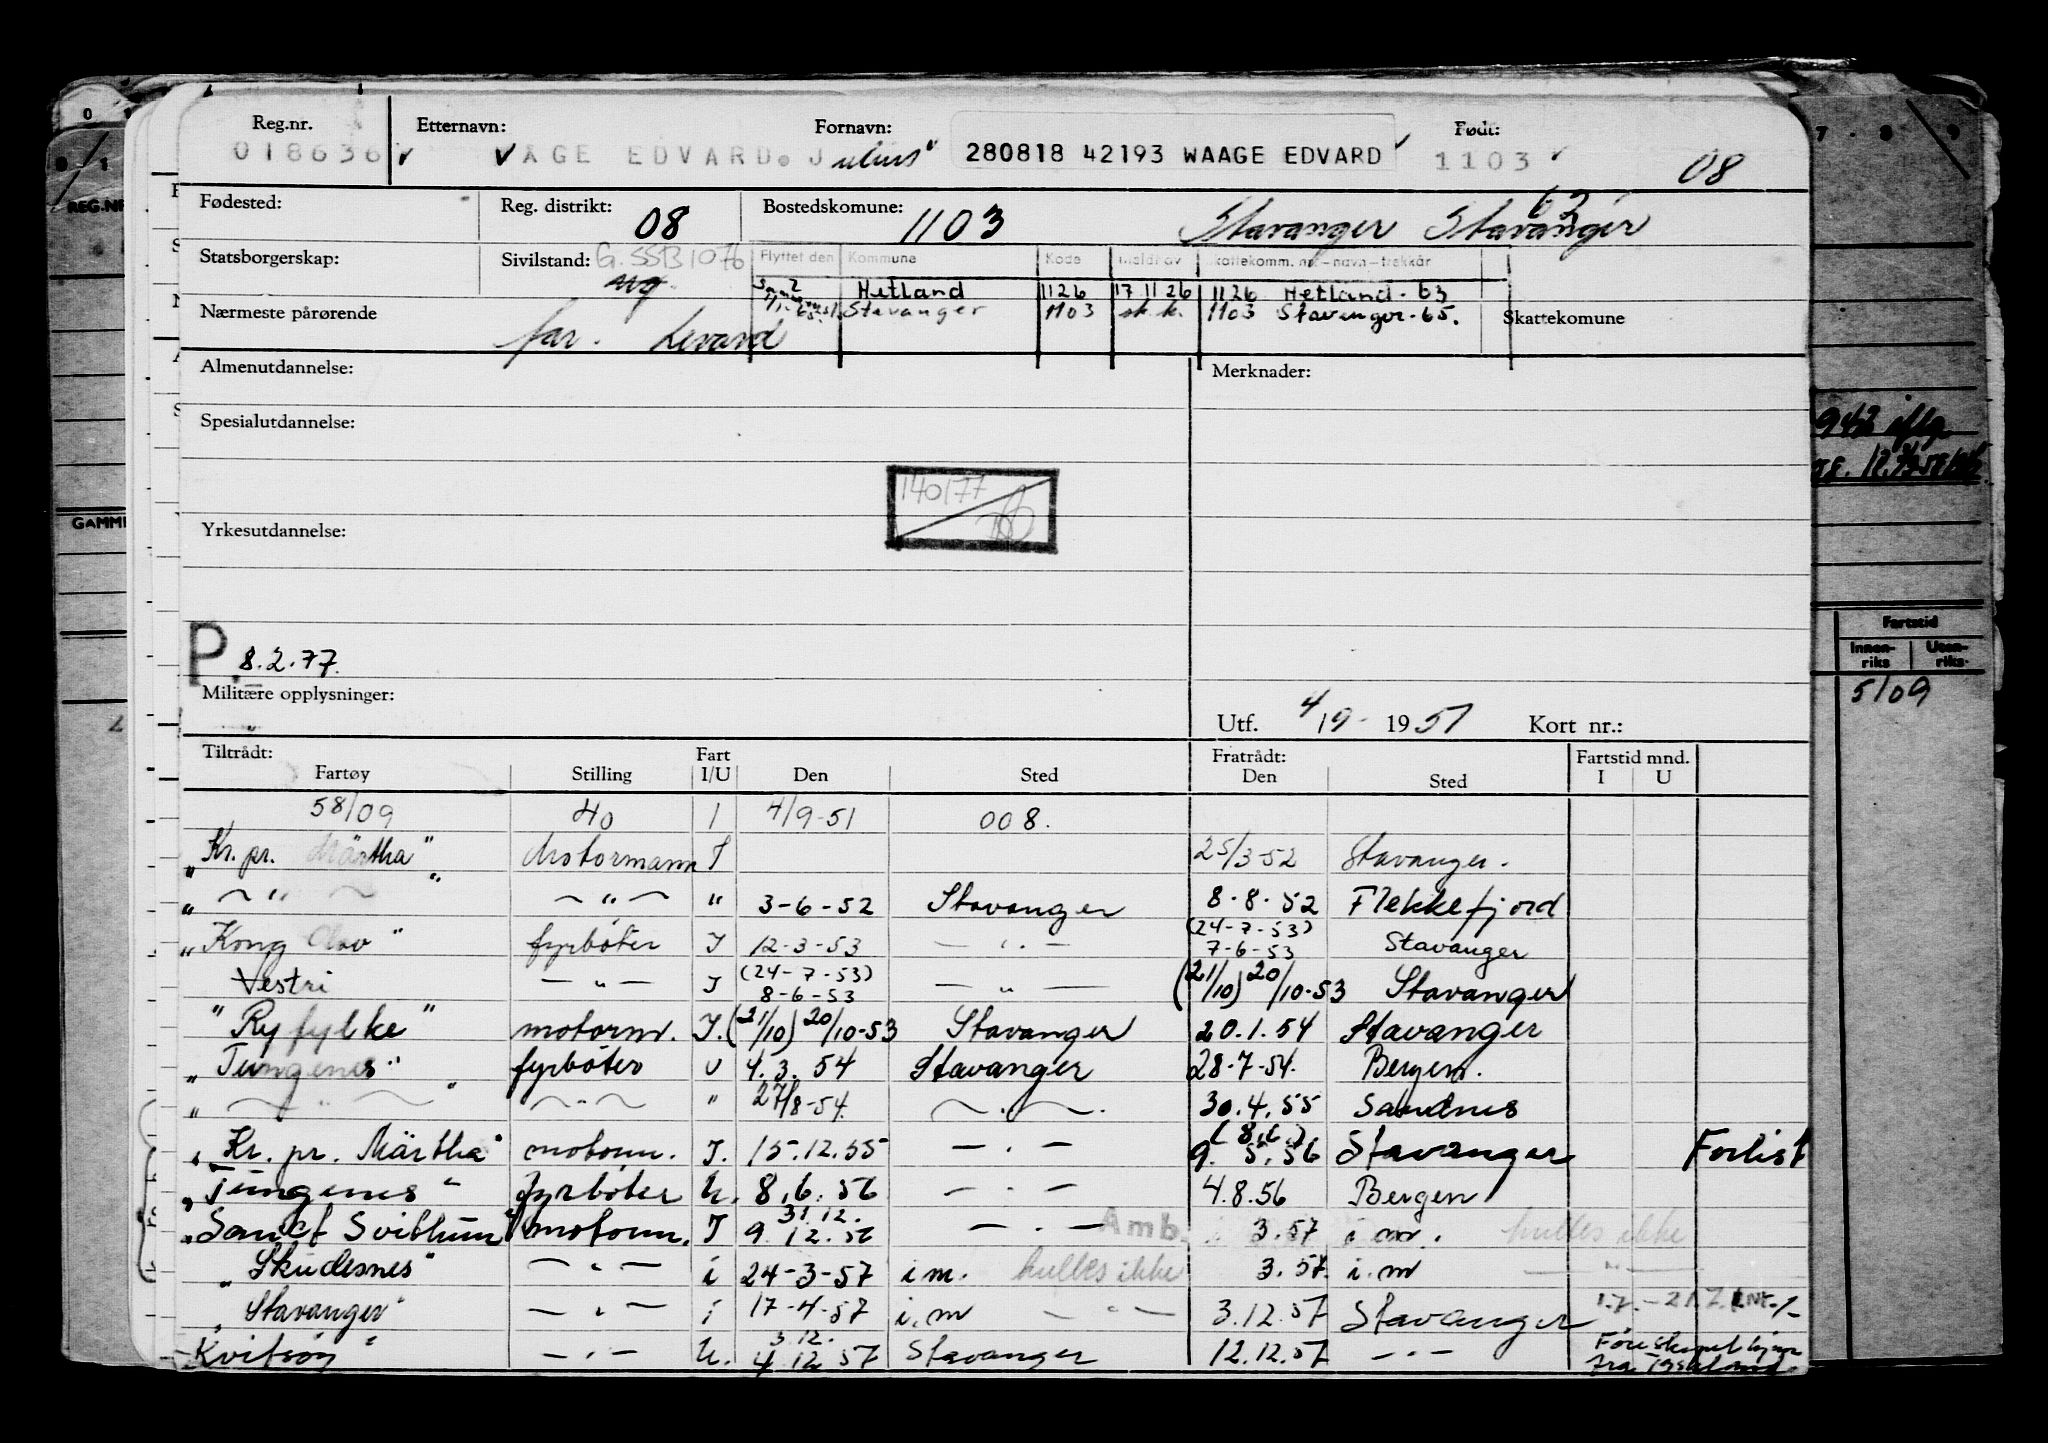 Reg.nr. Etternavn: Fornavn: Født:
018636 VAGE EDVARD. Julius 280818 42193 WAAGE EDVARD 1103 08
Fødested: Reg. distrikt: 08 Bostedskomune: 1103 Stavanger 63 Stavanger
Statsborgerskap: Sivilstand: G. SSB 1076 ug Flyttet den Kommune Kode Meldt av Skattekomm. nr-navn-trekkår
Hetland 1126 17 11 26 1126 Hetland - 63
Nærmeste pårørende Stavanger 1103 sk.k. 1103 Stavanger - 65. Skattekomune
far. Levard
Almenutdannelse: Merknader:
Spesialutdannelse:
140177
Yrkesutdannelse:
P. 8.2.77.
Militære opplysninger:
Utf. 4/9- 1951 Kort nr.:
Tiltrådt: Fart Fratrådt: Fartstid mnd.
Fartøy Stilling I/U Den Sted Den Sted I U
58/09 40 1 4/9-51 008.
"Kr. pr. Märtha" Motormann I 25/3-52 Stavanger.
" — " — " — " — " 3-6-52 Stavanger 8.8.52 Flekkefjord
"Kong Olav" fyrbøter I 12-3-53 — " — (24-7-53) 7-6-53 Stavanger
Vestri — " — I (24-7-53) 8-6-53 — " — (21/10) 20/10-53 Stavanger
"Ryfylke" motorm. I. (21/10) 20/10-53 Stavanger 20.1.54 Stavanger
"Tungenes" fyrbøter U 4.3.54 Stavanger 28-7-54. Bergen.
" — " — " — " — " 27/8-54. — " — 30.4.55 Sandnes
"Kr. pr. Märtha" motorm. I. 15.12.55 — " — (8.6.) 9.5.56 Stavanger Forlist
"Tungenes" fyrbøter U. 8.6.56 — " — 4.8.56 Bergen
"Sanct Svithun" motorm. I 31.12. 9.12.56 — " — Amb. 3.57 i.m. hulles ikke
"Skudesnes" — " — i 24-3-57 i.m. hulles ikke 3.57. i.m — " —
"Stavanger" — " — i 17-4-57 i.m — " — 3.12.57 Stavanger
Kvitsøy" — " — U. 3.12. 4.12.57 Stavanger 12.12.57 — " —
REG.NR
GAMM
7 - 8 - 9
Fartstid
Innen-riks Uten-riks
5/09